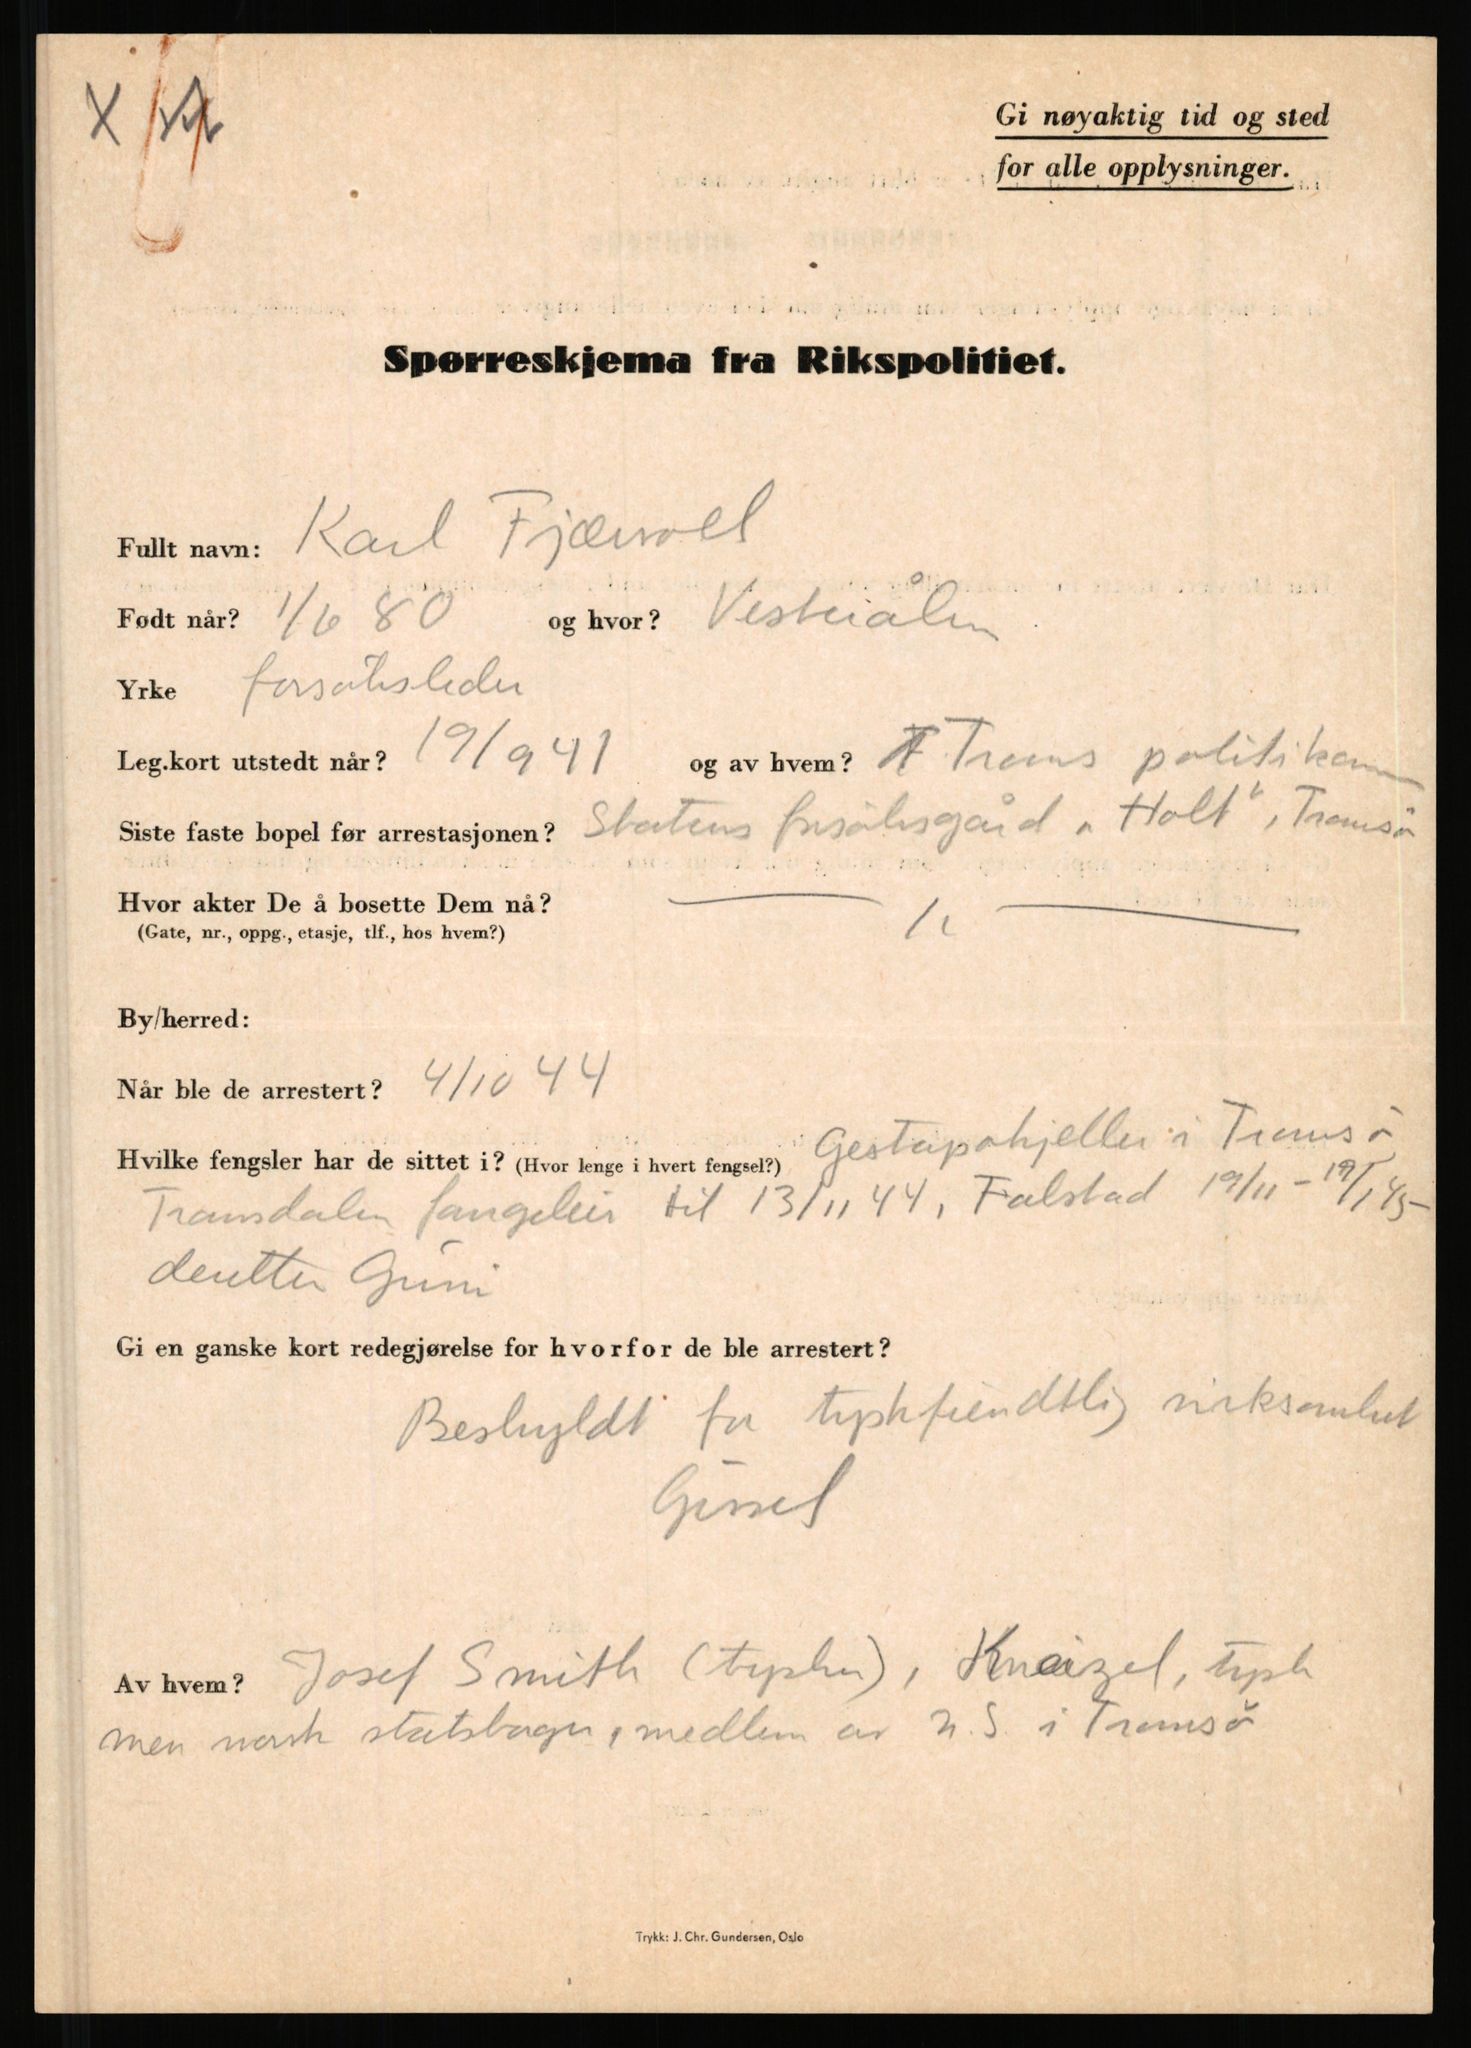 Gi nøyaktig tid og sted
for alle opplysninger.
Spørreskjema fra Rikspolitiet.
Fullt navn: Karl Fjærvoll
Født når? 1/6 80 og hvor? Vesterålen
Yrke forsöksleder
Leg.kort utstedt når? 19/9 41 og av hvem? Troms politikam
Siste faste bopel før arrestasjonen? Statens forsöksgård „Holt“, Tromsö
Hvor akter De å bosette Dem nå? — " —
(Gate, nr., oppg., etasje, tlf., hos hvem?)
By/herred:
Når ble de arrestert? 4/10 44
Hvilke fengsler har de sittet i? (Hvor lenge i hvert fengsel?) Gestapokjeller i Tromsö
Tromsdalen fangeleir til 13/11 44, Falstad 19/11 - 19/1 45 -
deretter Grini
Gi en ganske kort redegjørelse for hvorfor de ble arrestert?
Beskyldt for tyskfiendtlig virksomhet
Gissel
Av hvem? Josef Smith (tysker), Kneizel, tysk
men norsk statsborger, medlem av N.S. i Tromsö
Trykk: J. Chr. Gundersen, Oslo